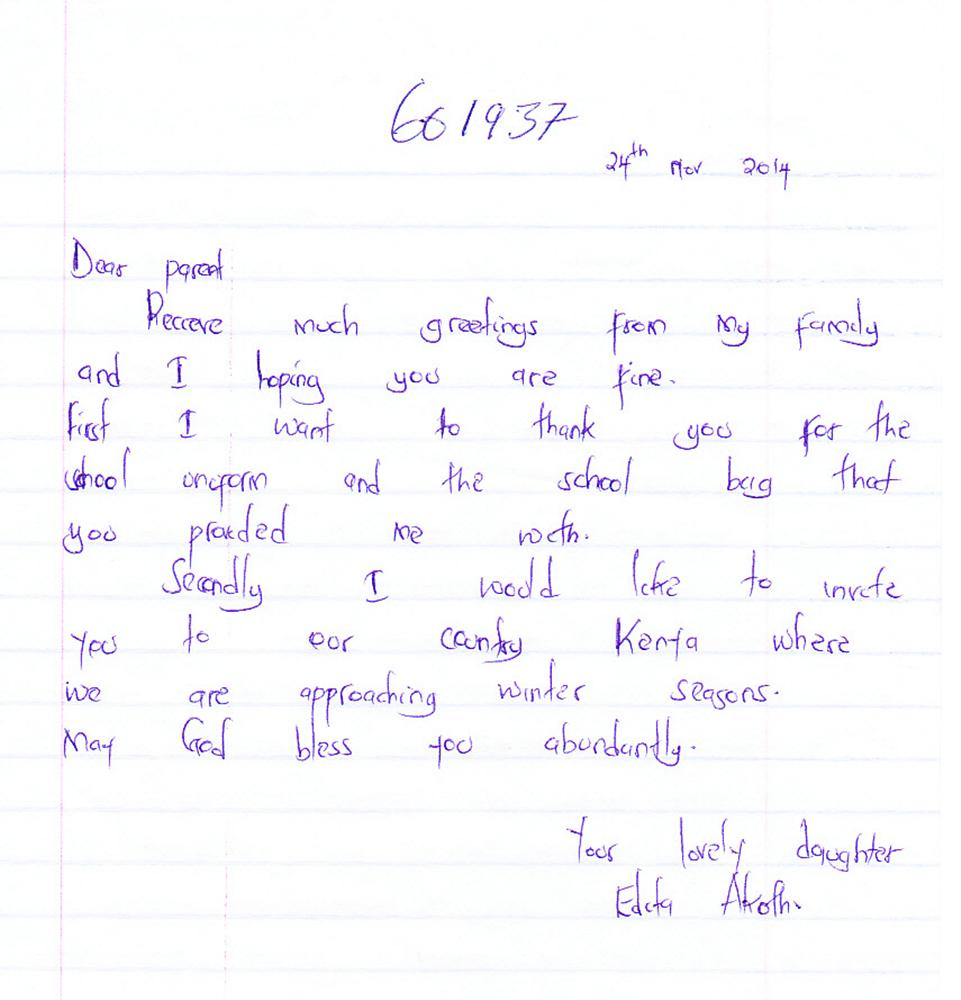 661937
24th Nov 2014
Dear parent
Receive much greetings from my family
and I hoping you are fine.
first I want to thank you for the
school uniform and the school bag that
you provided me with.
Secondly I would like to invite
you to our country Kenya where
we are approaching winter seasons.
May God bless you abundantly.
Your lovely daughter
Edita Akoth.